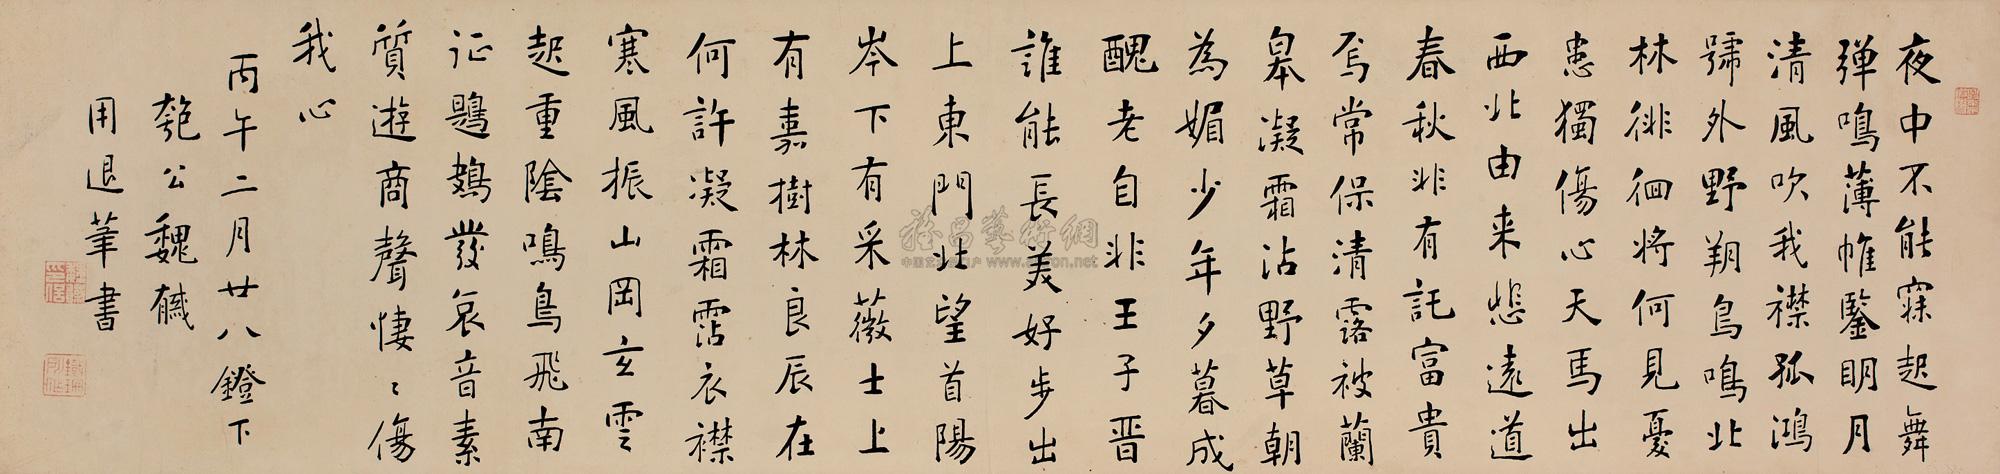 夜中不能寐起舞
弹鳴薄帷鑒明月
清風吹我襟孤鴻
號外野朔鳥鳴北
林徘徊將何見憂
思獨傷心天馬出
西北由来悲遠道
春秋非有託富貴
焉常保清露被蘭
皋凝霜沾野草朝
為媚少年夕暮成
醜老自非王子晉
誰能長美好步出
上東門北望首陽
岑下有采薇士上
有嘉樹林良辰在
何許凝霜霑衣襟
寒風振山岡玄雲
起重陰鳴鳥飛南
征鶗鴂發哀音素
質遊商聲悽〻傷
我心
丙午二月廿八鐙下
匏公魏戫
用退筆書